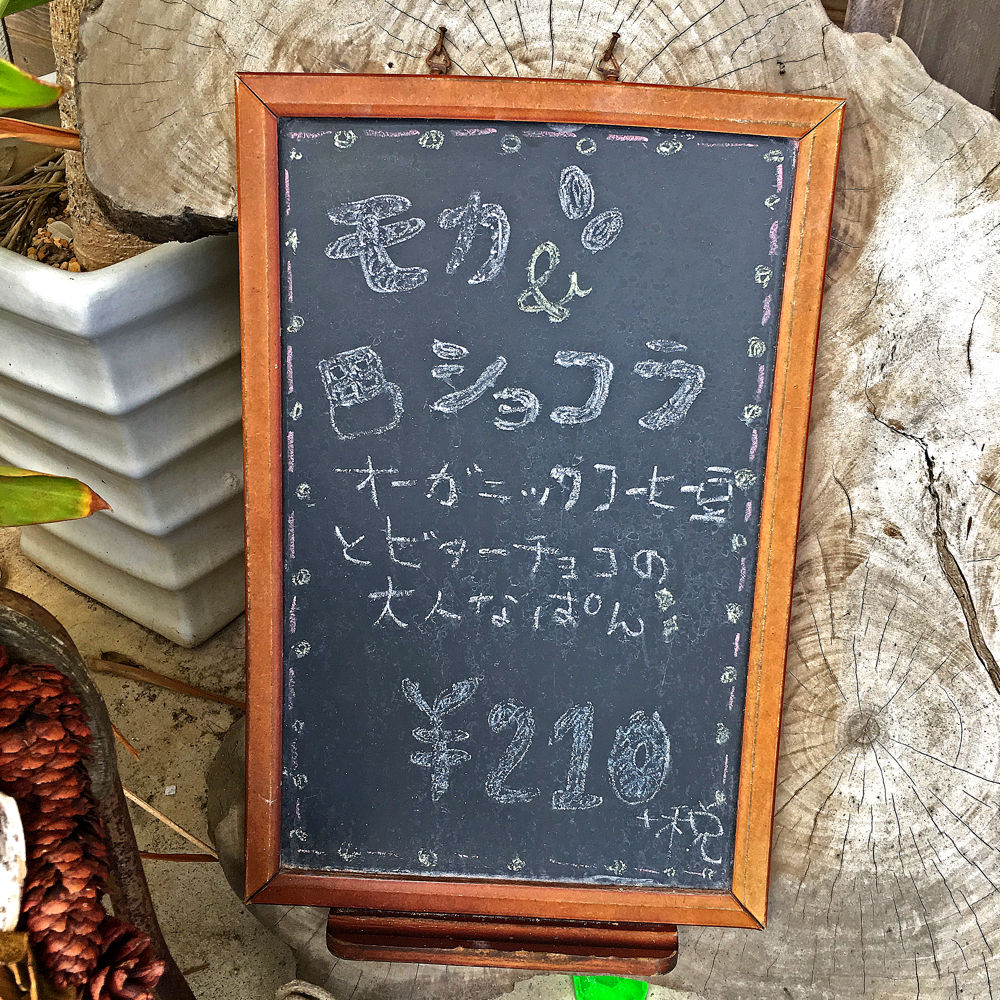 モカ &
ショコラ
オーガニックコーヒー豆
とビターチョコの
大人なぱん
¥210
+税